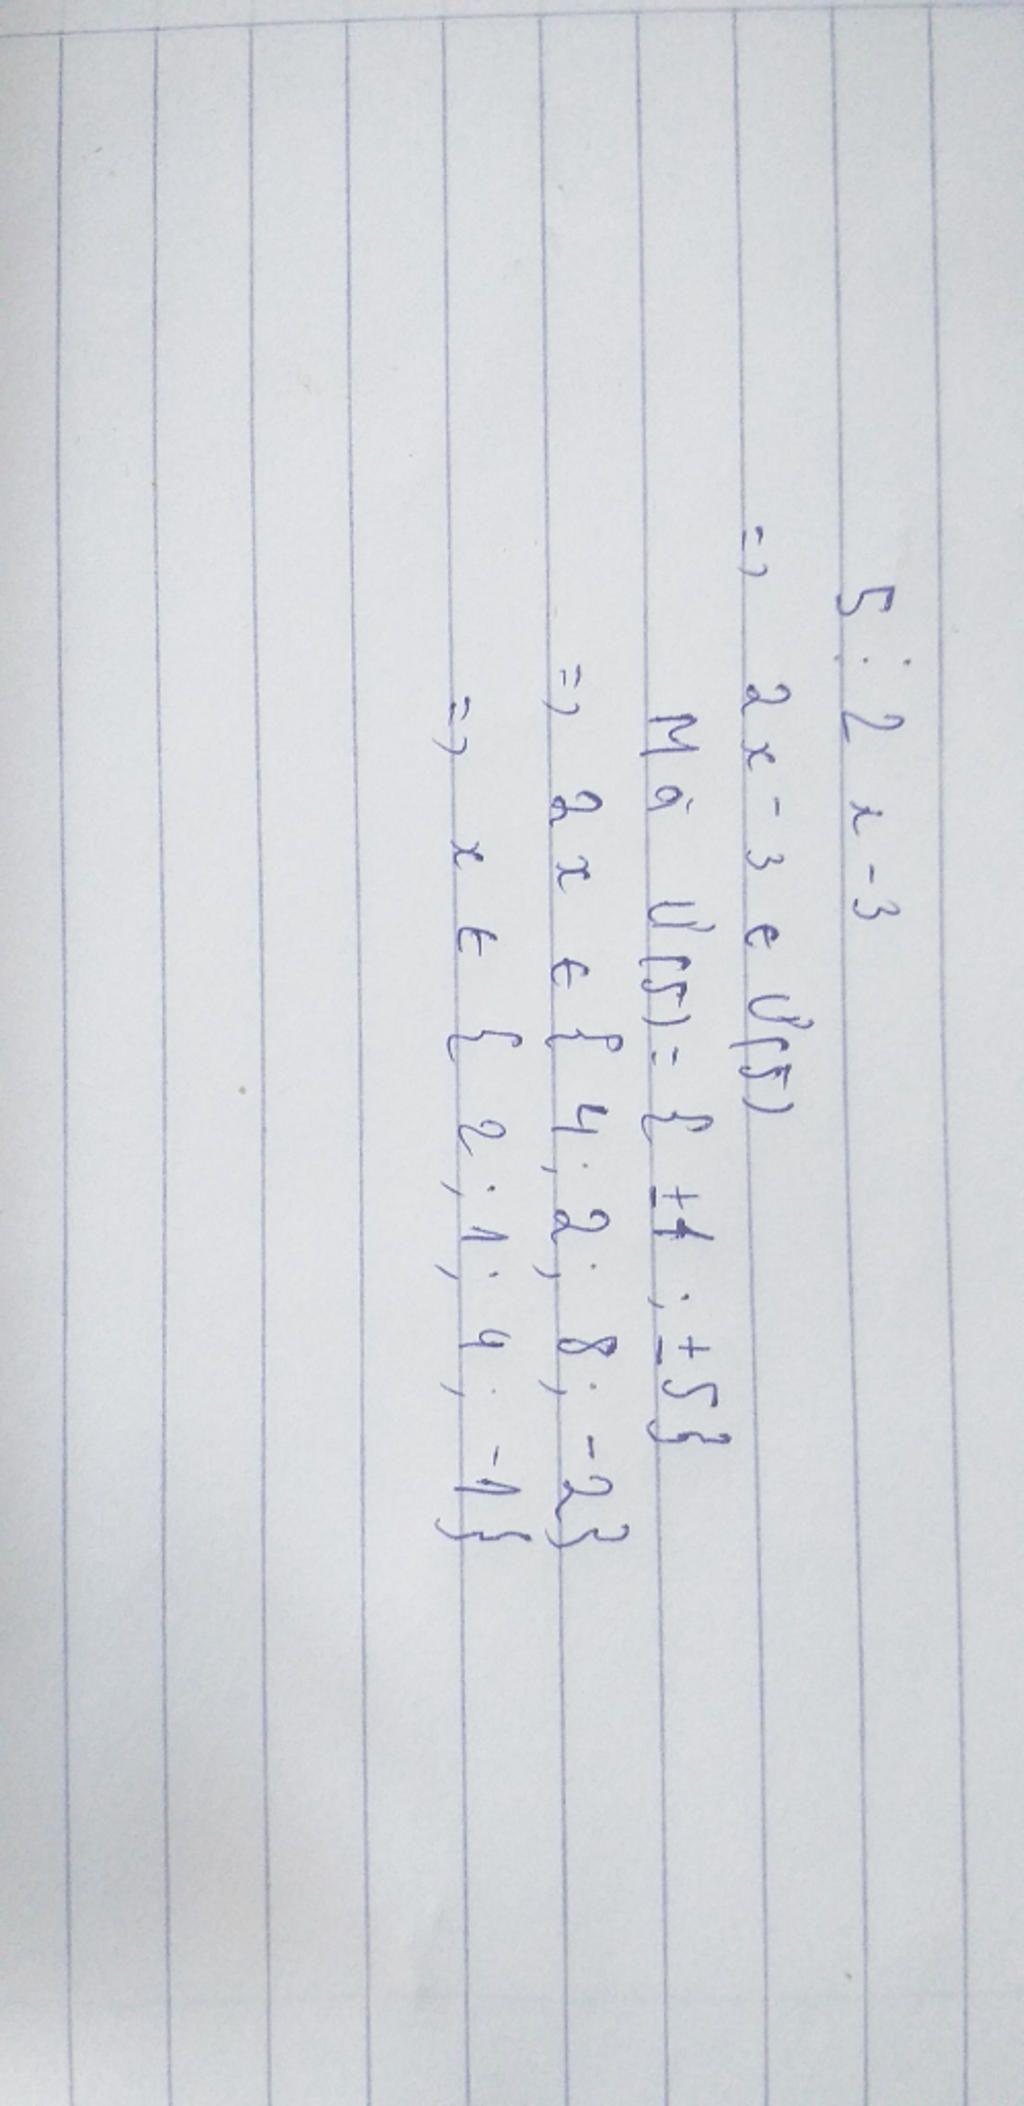 5 ⋮ 2x-3
=> 2x-3 ∈ Ư(5)
Mà Ư(5) = { ±1 ; ±5}
=> 2x ∈ { 4 ; 2 ; 8 ; -2}
=> x ∈ { 2 ; 1 ; 4 ; -1}